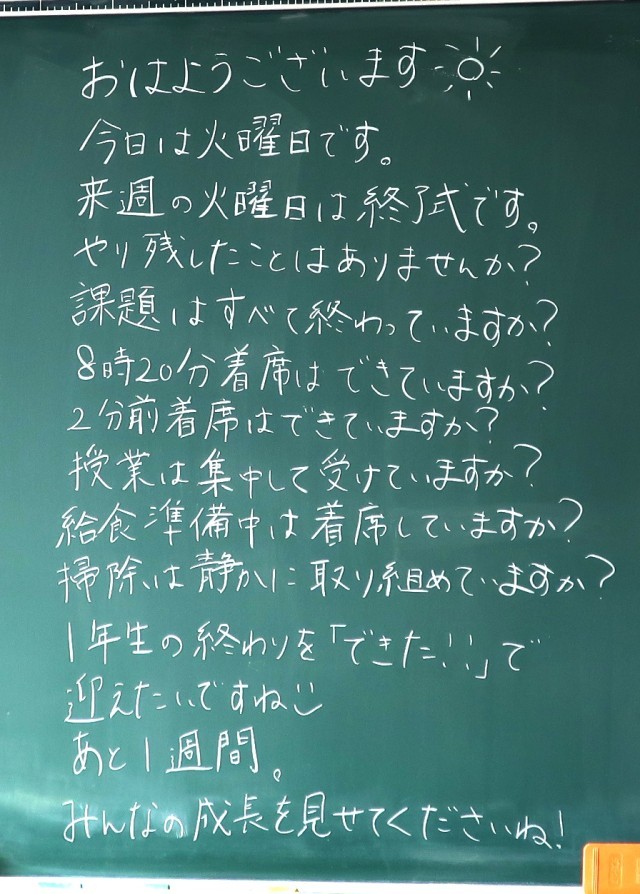 おはようございます
今日は火曜日です。
来週の火曜日は終了式です。
やり残したことはありませんか?
課題はすべて終わっていますか?
8時20分着席はできていますか?
2分前着席はできていますか?
授業は集中して受けていますか?
給食準備中は着席していますか?
掃除は静かに取り組めていますか?
1年生の終わりを「できた!!」で
迎えたいですね
あと1週間。
みんなの成長を見せてくださいね!